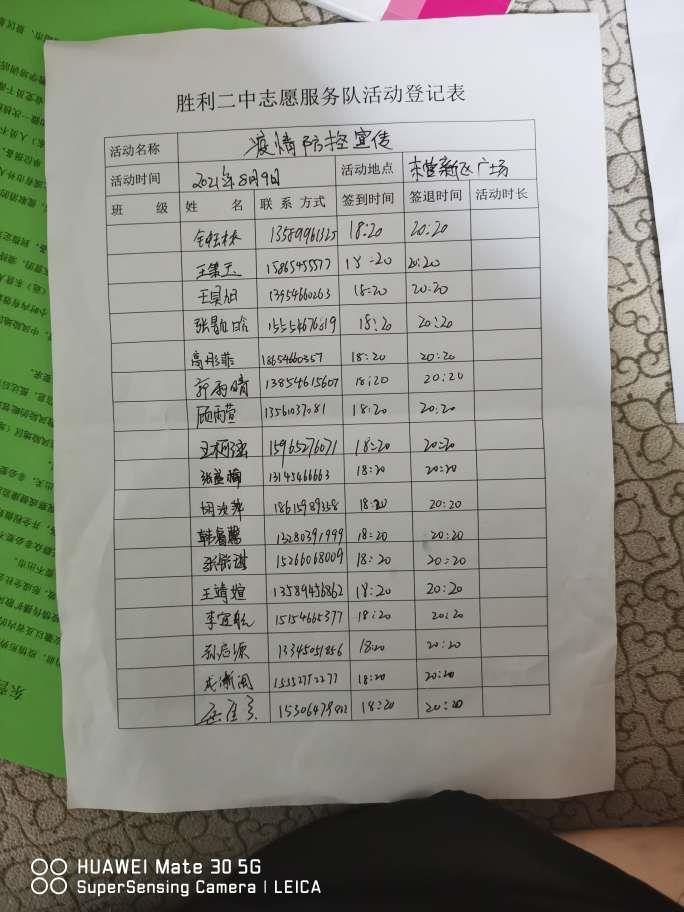 胜利二中志愿服务队活动登记表
活动名称 疫情防控宣传
活动时间 2021年8月9日 活动地点 东营新区广场
班 级 姓 名 联系方式 签到时间 签退时间 活动时长
13589961325 18:20 20:20
15865455577 18:20 20:20
13954660263 18:20 20:20
15554676619 18:20 20:20
高彤菲 18654660357 18:20 20:20
郭雨晴 13854615607 18:20 20:20
顾雨萱 13561037081 18:20 20:20
15965276071 18:20 20:20
张益楠 13145466663 18:20 20:20
18615989358 18:20 20:20
韩睿馨 13280391999 18:20 20:20
张懿琪 15266068009 18:20 20:20
王靖煊 13589456862 18:20 20:20
李宜航 15154665377 18:20 20:20
孙启源 13345051856 18:20 20:20
15552752277 18:20 20:20
18:20 20:20
HUAWEI Mate 30 5G
SuperSensing Camera | LEICA